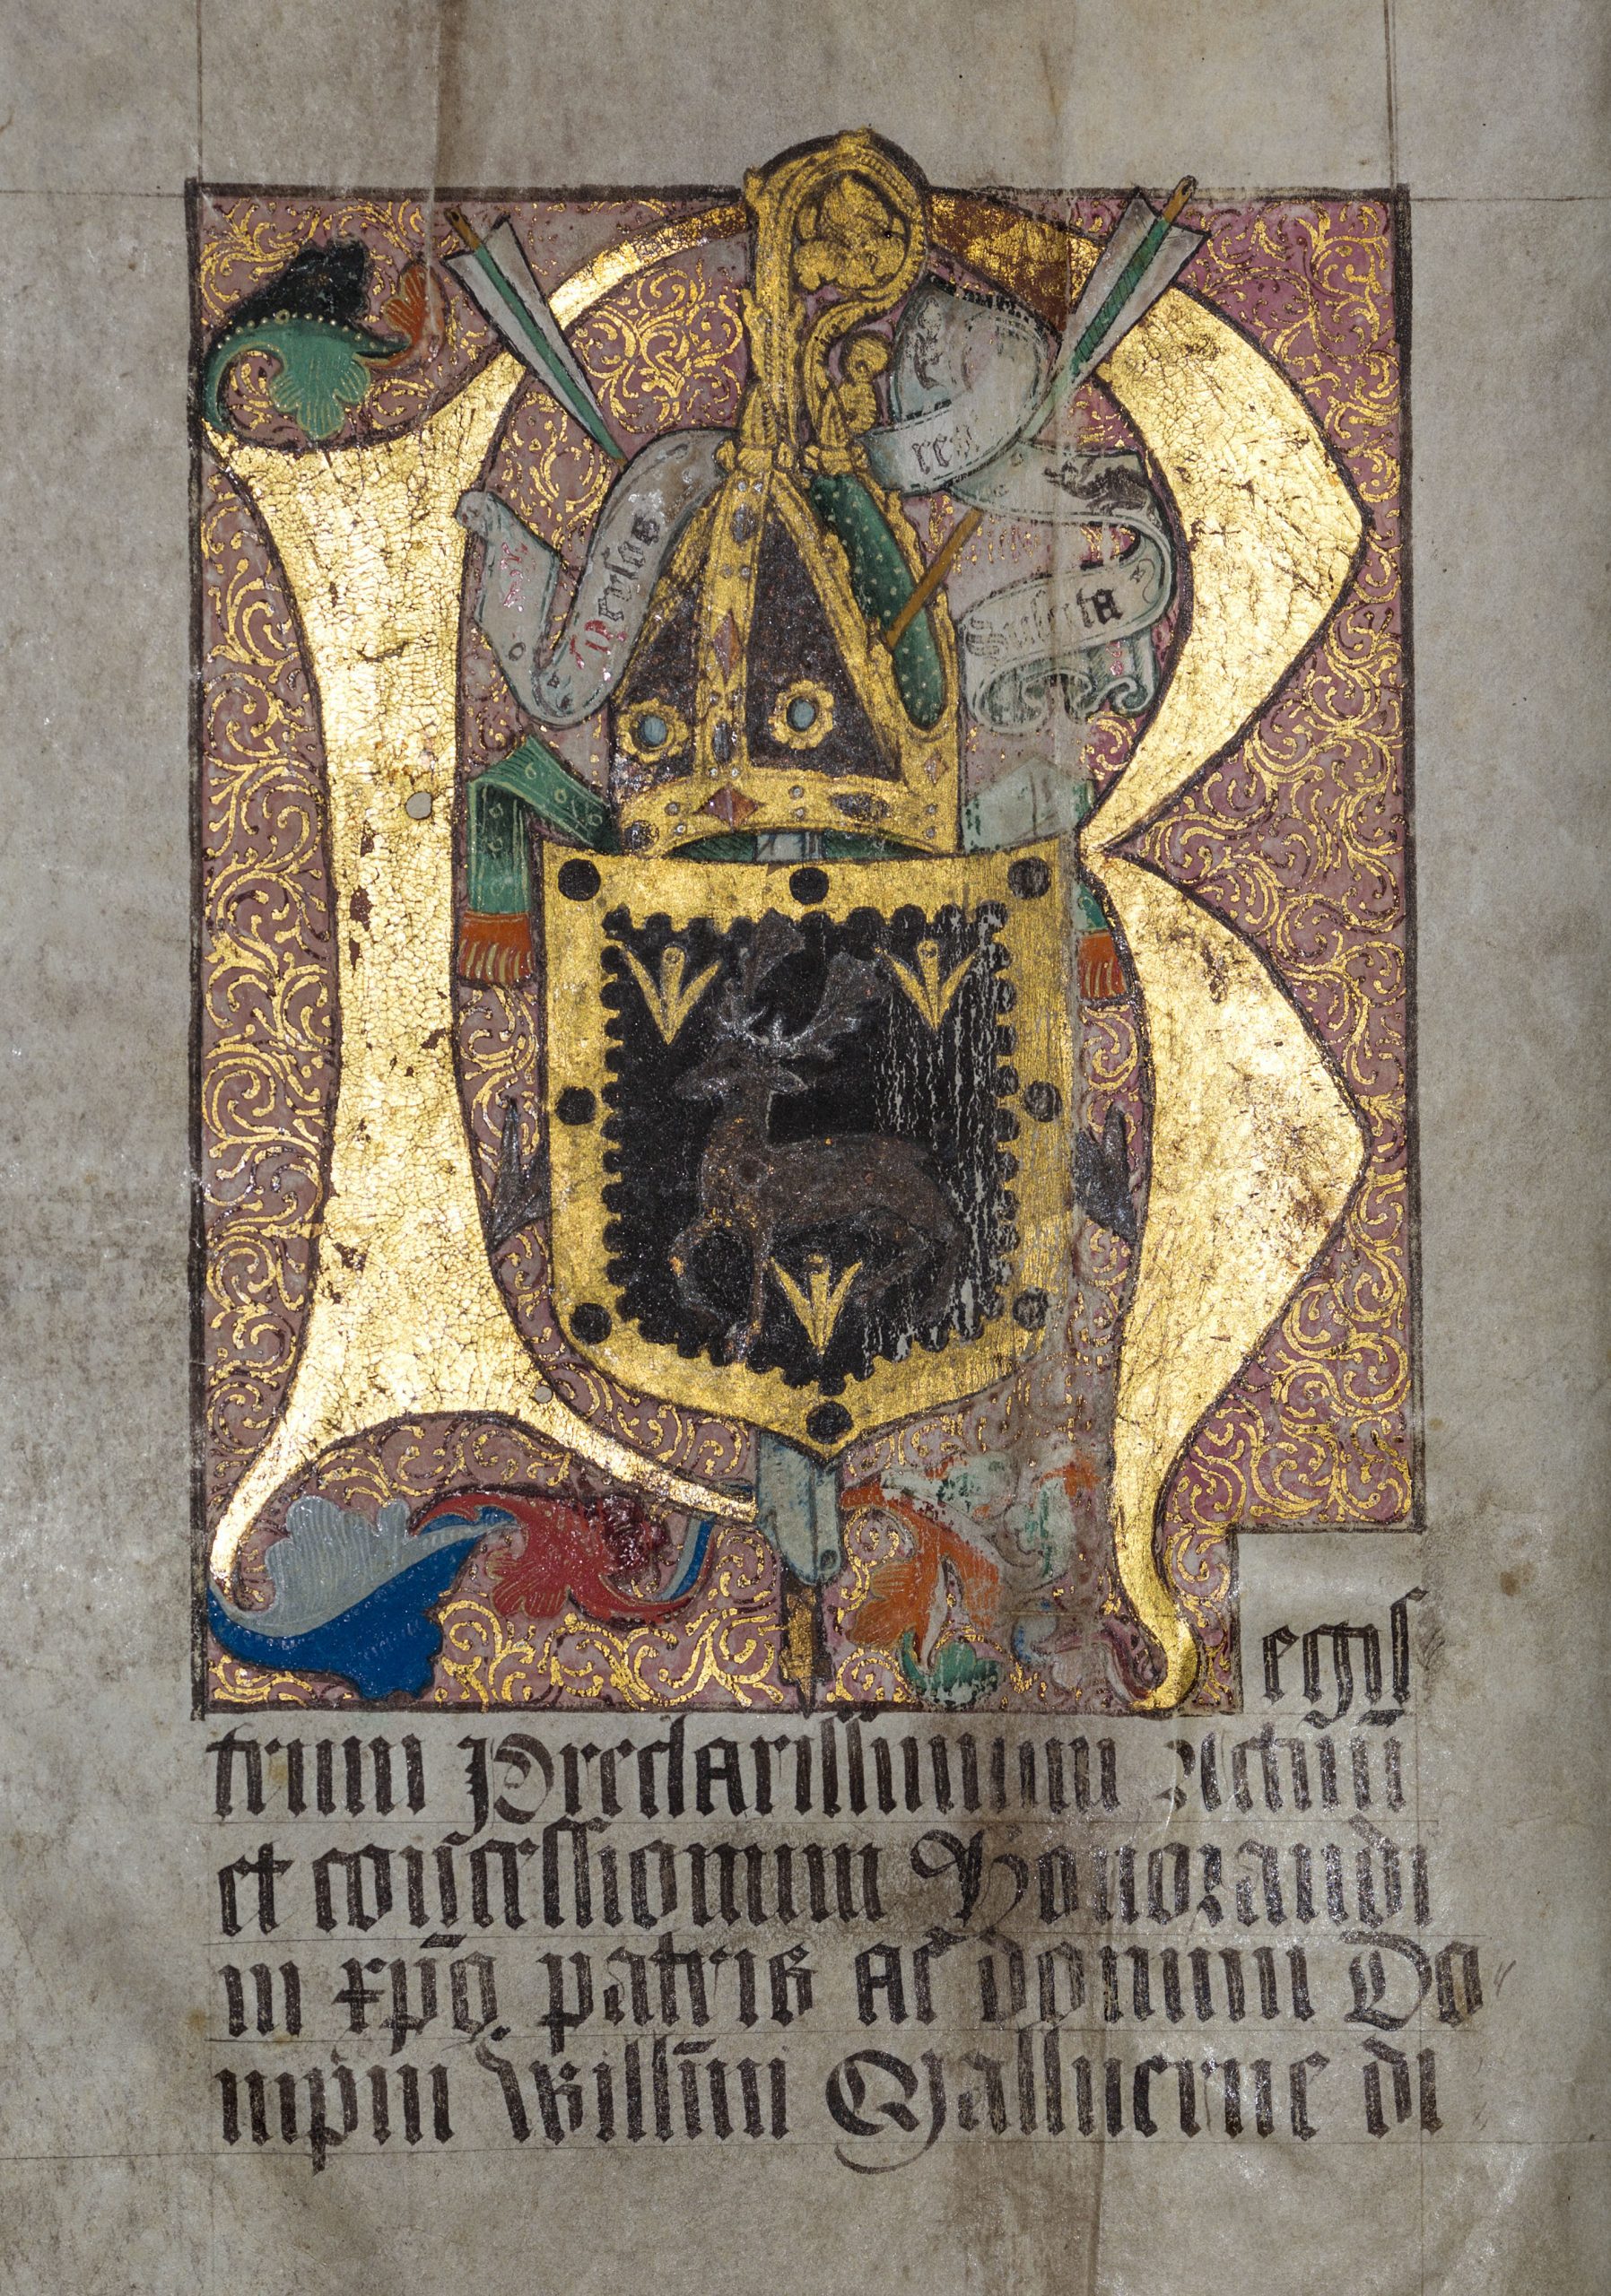 Versus
rex
R egis
trum Preclarissimum Actuū
et conscessionum Honorandi
in xp̄o patris ac domini Do
mpni Willm̄i Wallucrne di